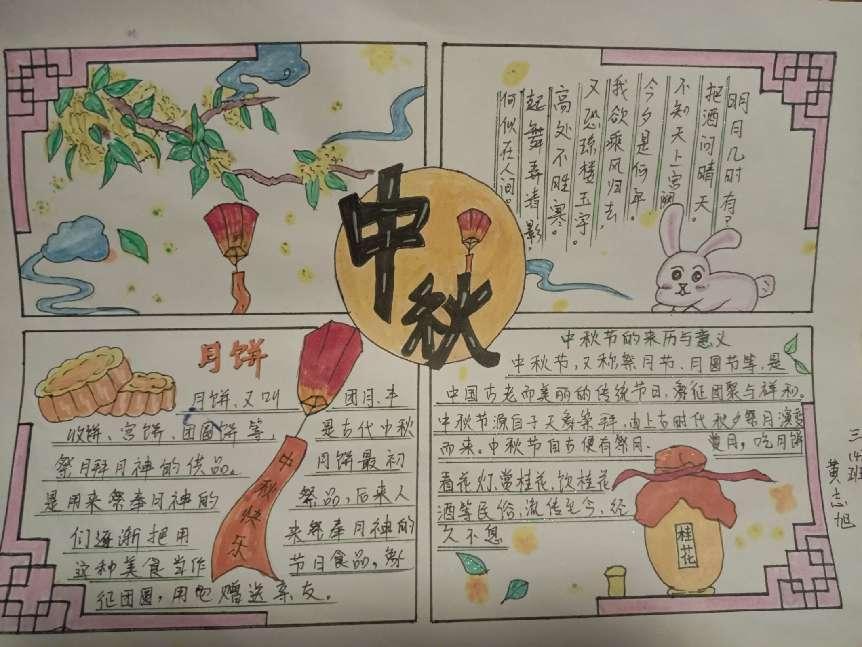 中秋
明月几时有？
把酒问晴天。
不知天上宫阙
今夕是何年。
我欲乘风归去，
又恐琼楼玉宇。
高处不胜寒。
起舞弄清影
何似在人间。
月饼
月饼、又叫 团月、丰
收饼、宫饼、团圆饼等， 是古代中秋
祭月拜月神的供品。 月饼最初
是用来祭奉月神的 祭品，后来人
们逐渐把用 来祭奉月神的
这种美食当作 节日食品，
征团圆，用它赠送亲友。
中秋快乐
中秋节的来历与意义
中秋节，又称祭月节、月圆节等，是
中国古老而美丽的传统节日，象征团聚与祥和。
中秋节源自于天象祭拜，由上古时代秋夕祭月演变
而来。中秋节自古便有祭月、 赏月，吃月饼
看花灯、赏桂花、饮桂花
酒等民俗，流传至今，经
久不息
桂花
三(4)班
黄志旭